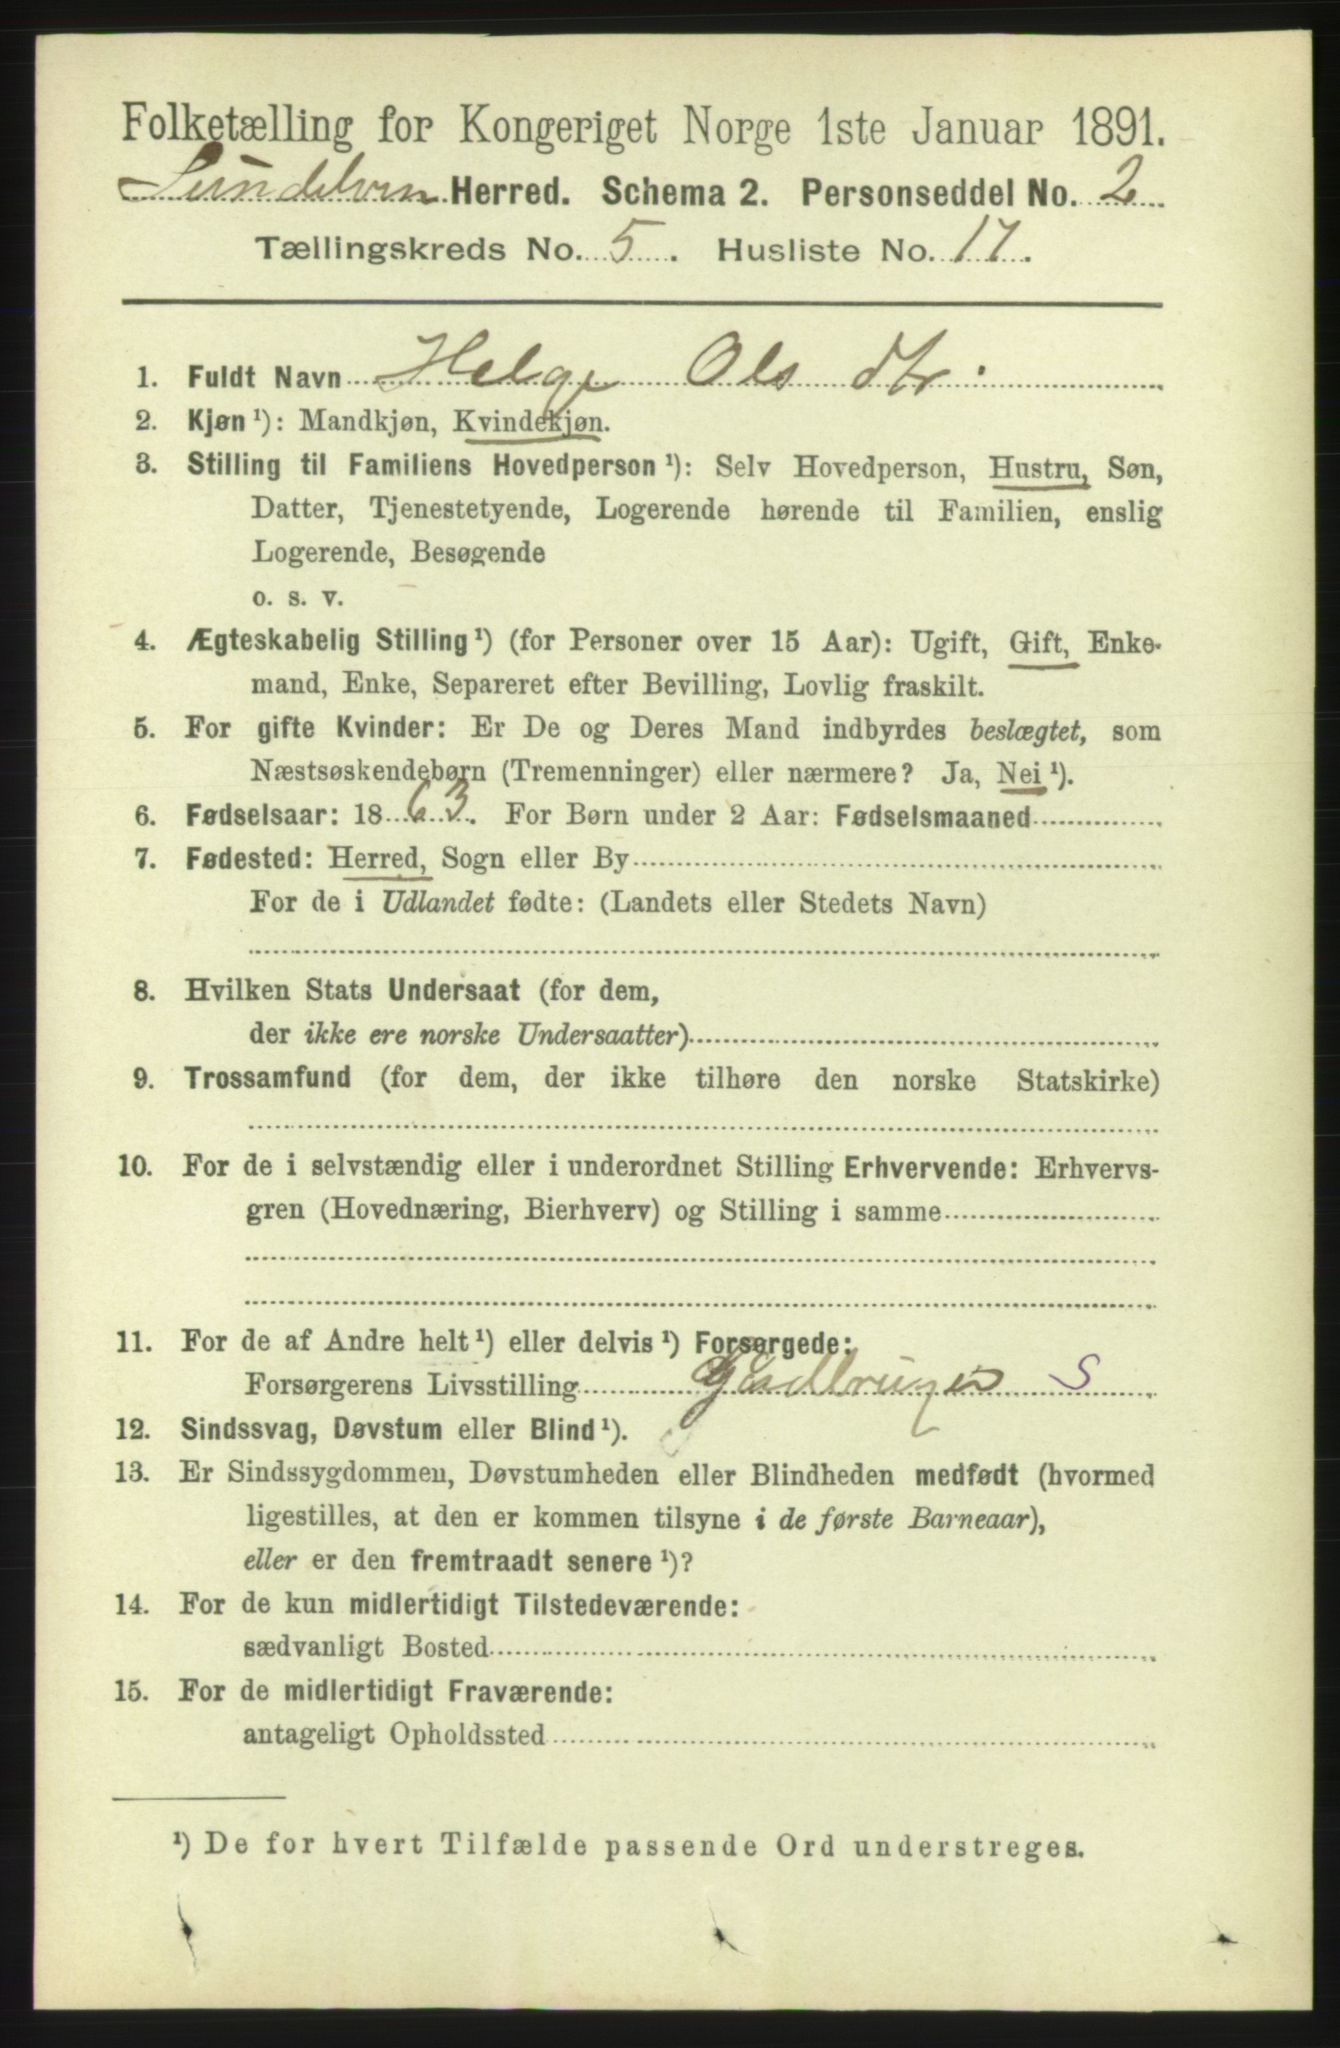 Folketælling for Kongeriget Norge 1ste Januar 1891.
Herred. Schema 2. Personseddel No. 2
Tællingskreds No. 5. Husliste No. 17.
1. Fuldt Navn Helge Ols dtr.
2. Kjøn ¹): Mandkjøn, Kvindekjøn.
3. Stilling til Familiens Hovedperson ¹): Selv Hovedperson, Hustru, Søn,
Datter, Tjenestetyende, Logerende hørende til Familien, enslig
Logerende, Besøgende
o. s. v.
4. Ægteskabelig Stilling ¹) (for Personer over 15 Aar): Ugift, Gift, Enke-
mand, Enke, Separeret efter Bevilling, Lovlig fraskilt.
5. For gifte Kvinder: Er De og Deres Mand indbyrdes beslægtet, som
Næstsøskendebørn (Tremenninger) eller nærmere? Ja, Nei ¹).
6. Fødselsaar: 1863. For Børn under 2 Aar: Fødselsmaaned
7. Fødested: Herred, Sogn eller By
For de i Udlandet fødte: (Landets eller Stedets Navn)
8. Hvilken Stats Undersaat (for dem,
der ikke ere norske Undersaatter)
9. Trossamfund (for dem, der ikke tilhøre den norske Statskirke)
10. For de i selvstændig eller i underordnet Stilling Erhvervende: Erhvervs-
gren (Hovednæring, Bierhverv) og Stilling i samme
11. For de af Andre helt ¹) eller delvis ¹) Forsørgede:
Forsørgerens Livsstilling Gaardbruger S
12. Sindssvag, Døvstum eller Blind ¹).
13. Er Sindssygdommen, Døvstumheden eller Blindheden medfødt (hvormed
ligestilles, at den er kommen tilsyne i de første Barneaar),
eller er den fremtraadt senere ¹)?
14. For de kun midlertidigt Tilstedeværende:
sædvanligt Bosted
15. For de midlertidigt Fraværende:
antageligt Opholdssted
¹) De for hvert Tilfælde passende Ord understreges.